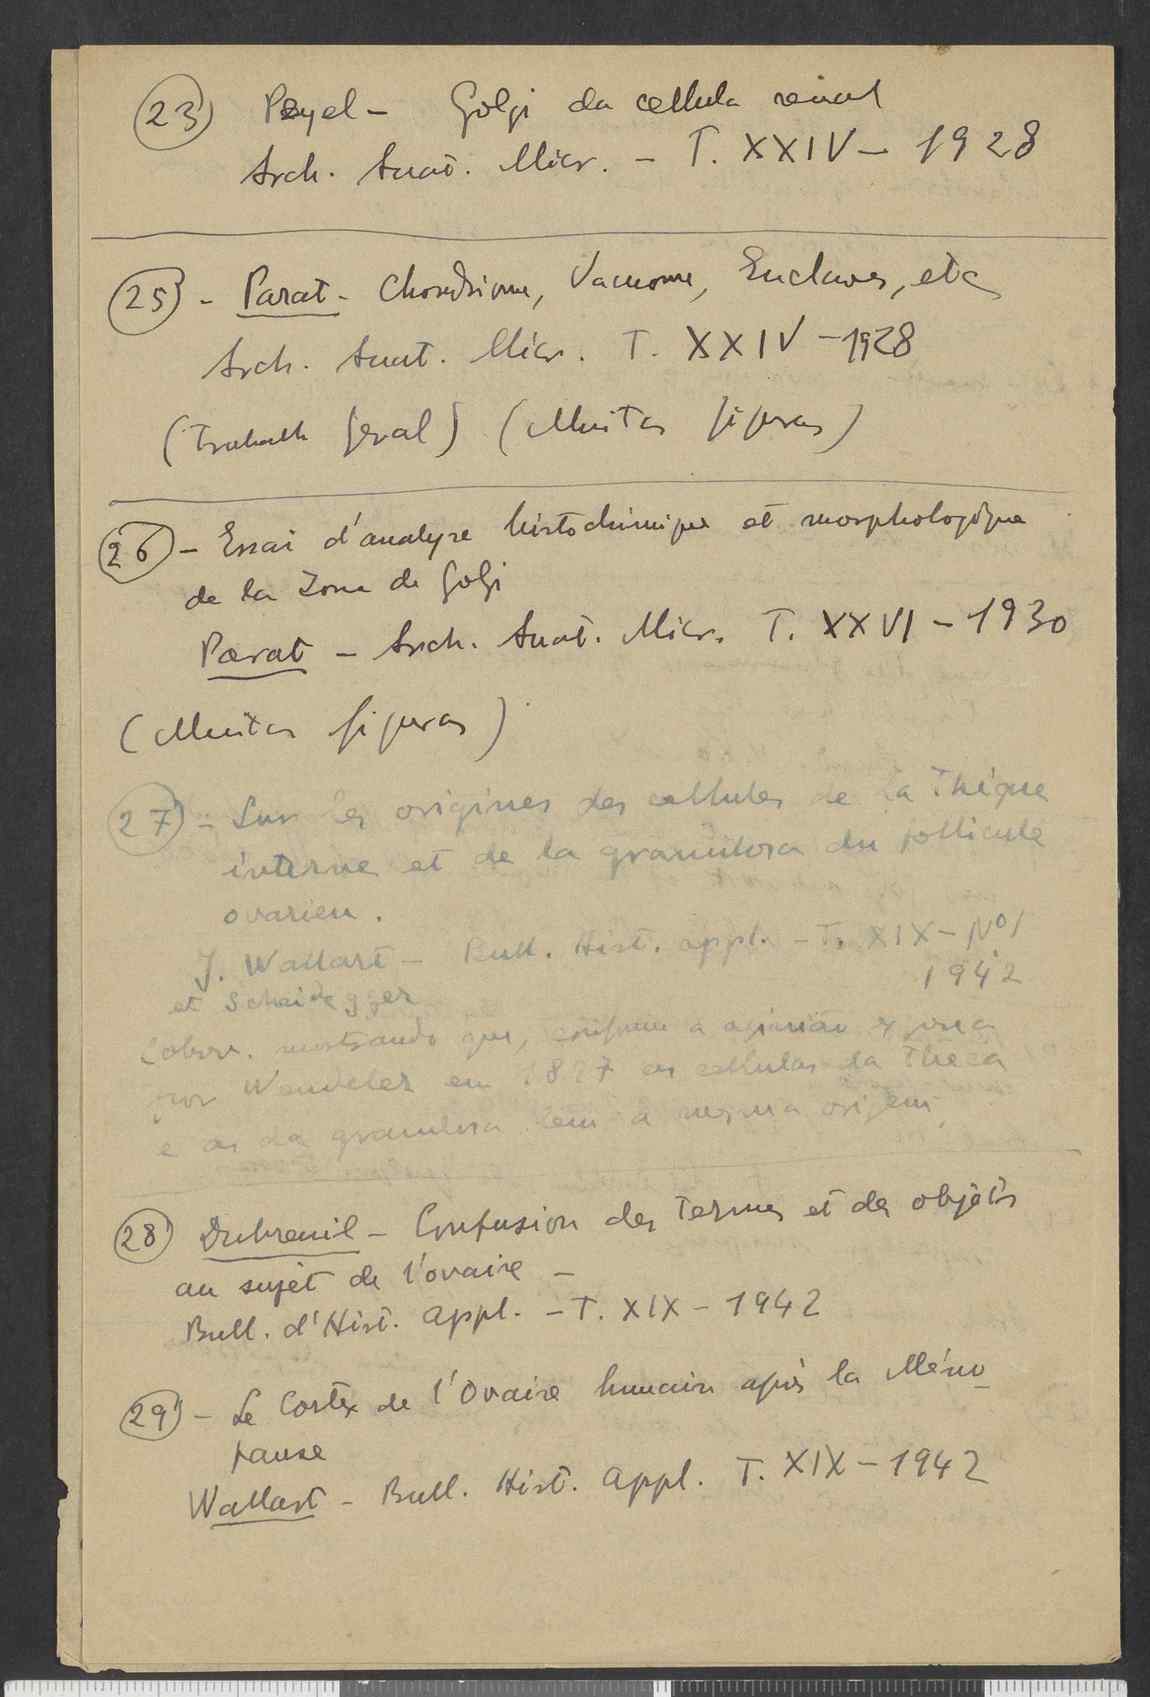 23 Peyel - Golgi da cellula renal
Arch. Anat. Micr. - T. XXIV - 1928
25 - Parat - Chondriome, Vacuome, Enclaves, etc
Arch. Anat. Micr. T. XXIV - 1928
(Trabalh geral) (Muitas figuras)
26 - Essai d'analyse histochimique et morphologique
de la zone de Golgi
Parat - Arch. Anat. Micr. T. XXVI - 1930
(Muitas figuras)
27 - Sur les origines des cellules de la Thèque
interne et de la granulosa du follicule
ovarien.
J. Wallart - Bull. Hist. appl. - T. XIX - Nº1
1942
et Scheidegger
(obser. mostrando que, conforme a opinião exposta
por Wendeler em as cellulas da Theca
e as da granulosa tem a mesma origem
28 Dubreuil - Confusion des termes et des objets
au sujet de l'ovaire -
Bull. d'Hist. appl. - T. XIX - 1942
29 - Le Cortex de l'Ovaire humain après la Méno_
pause
Wallart - Bull. Hist. appl. T. XIX - 1942